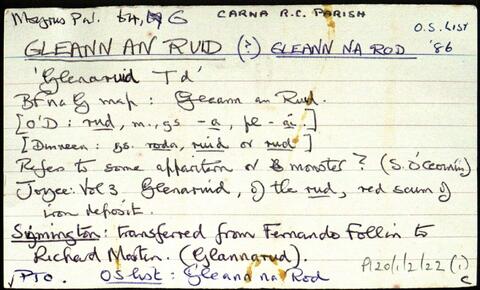 Moyrus Par. 64, 6 CARNA R.C. PARISH
O.S. LIST
GLEANN AN RUID (?) GLEANN NA ROD '86
'Glenaruid Td'
BF na G map : Gleann an Ruid.
[O'D : rud, m., gs -a, pl -aí.]
[Dinneen : gs. roda, ruid or rud]
Refers to some apparition or monster? (S. Ó'Ceoinín)
Joyce: Vol 3 Glenaruid, of the rud, red scum of
iron deposit.
Simington: transferred from Fernando Follin to
Richard Martin. (Glannarud).
P120/1/2/22 (i)
√PTO. OS list : Gleann na Rod
C